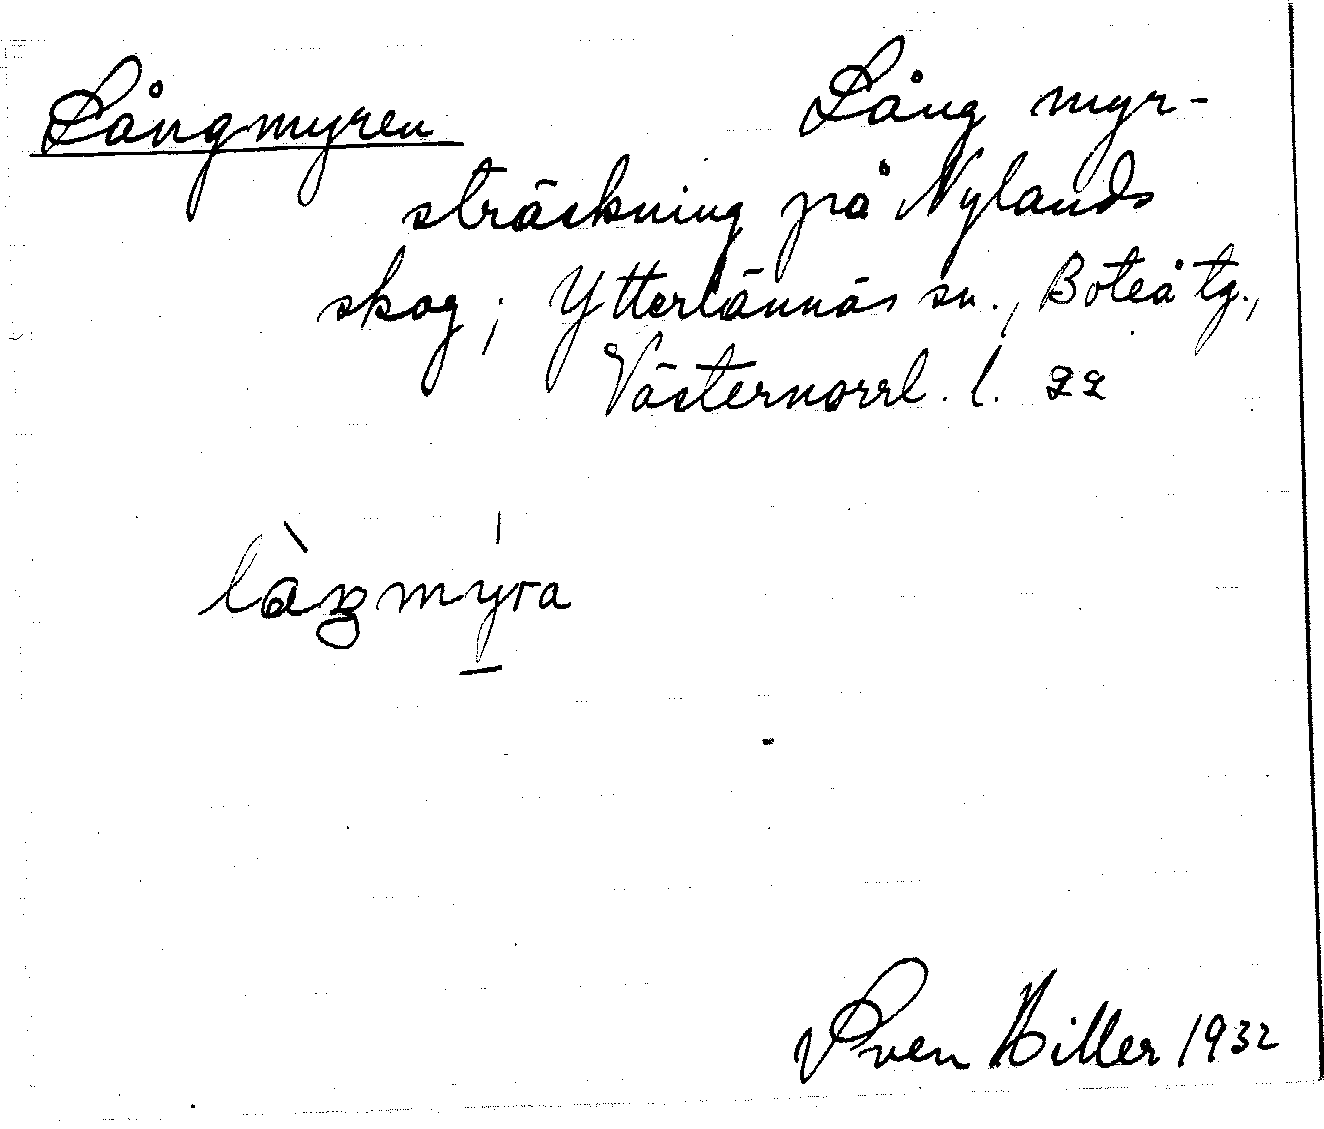 Långmyren Lång myr-
sträckning på Nylands
skog; Ytterlännäs sn., Boteå tg.,
Västernorrl. l. 22
Sven Hiller 1932